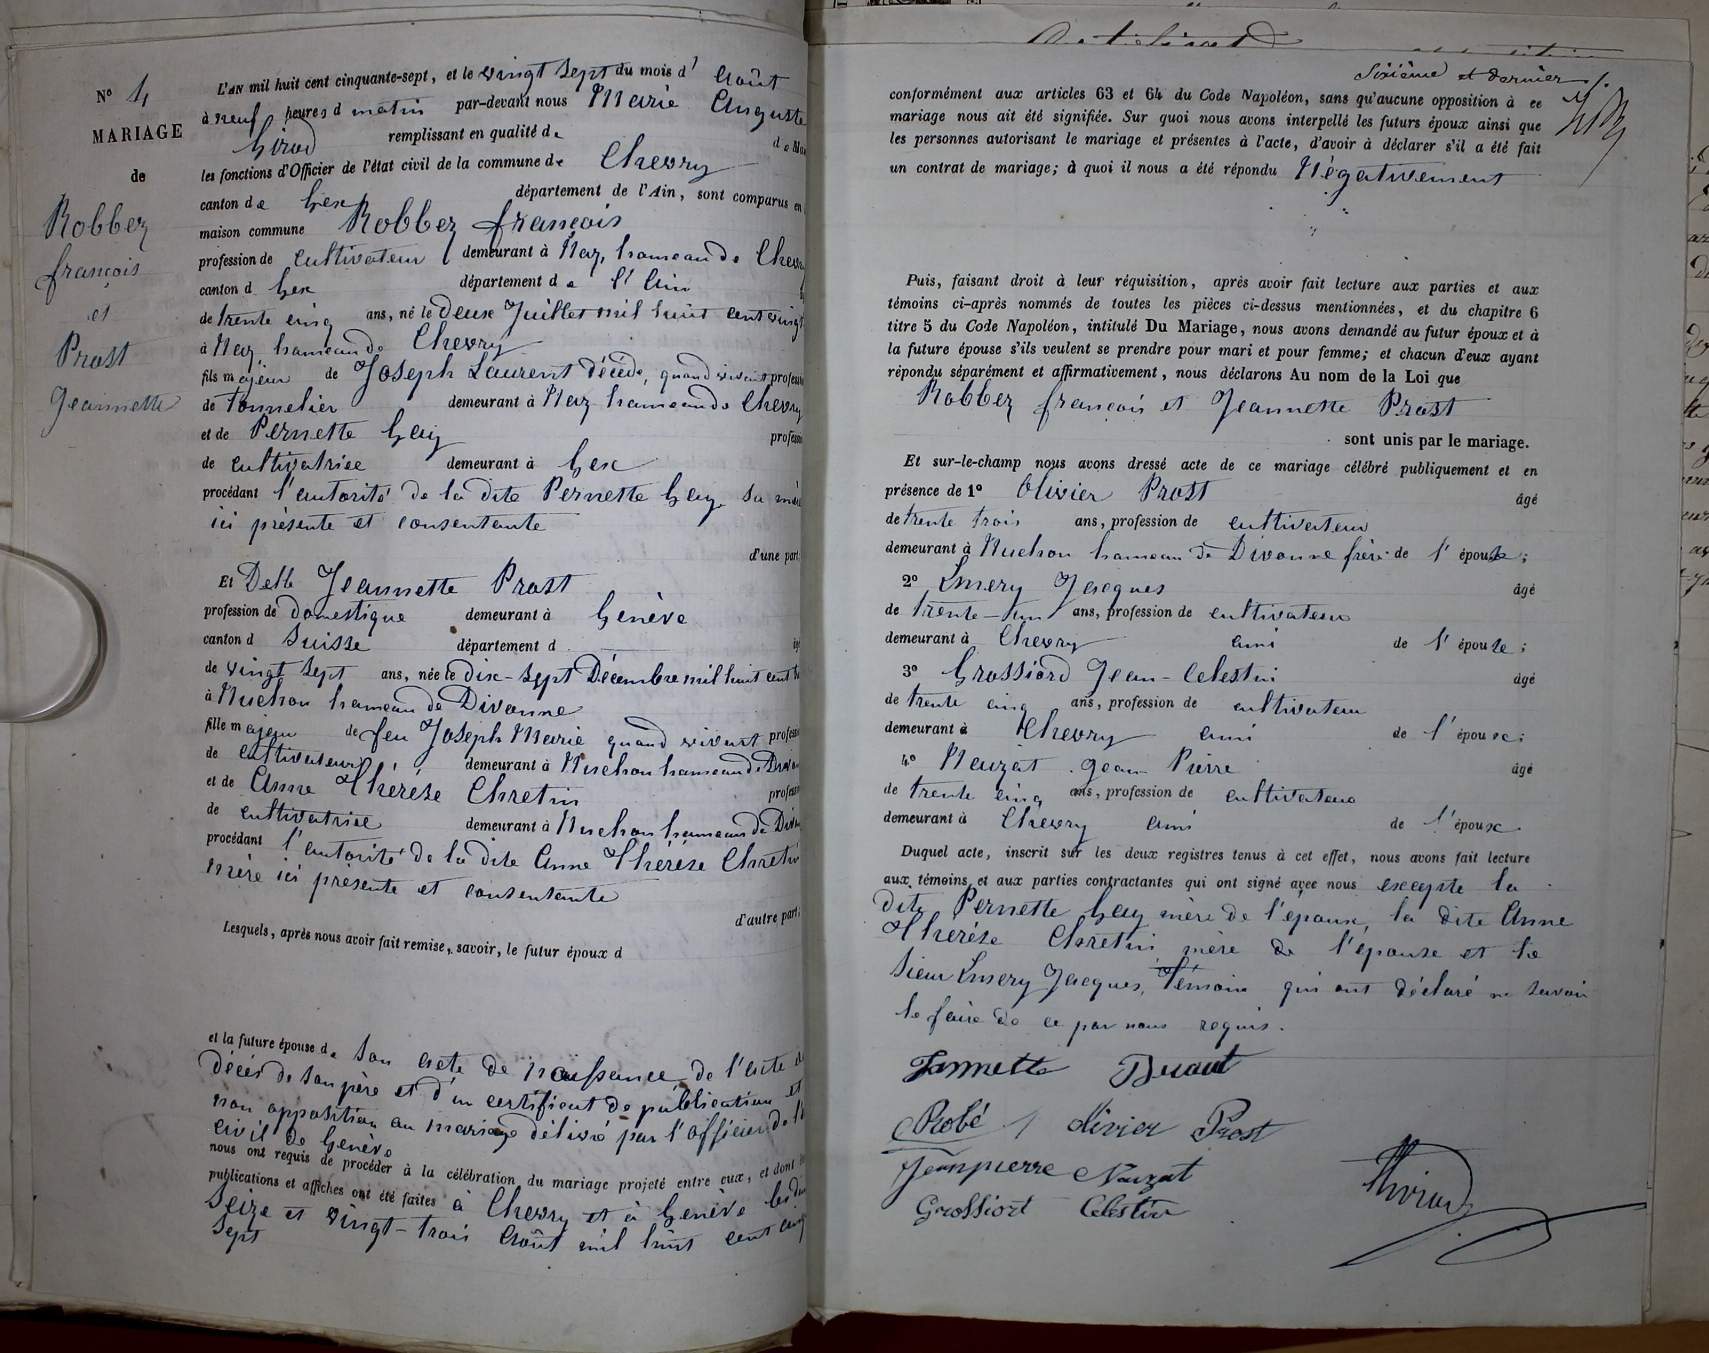 N° 4
MARIAGE
de
Robbez
françois
et
Prost
Jeannette
L'AN mil huit cent cinquante-sept, et le vingt sept du mois d' Août
à neuf heures d matin par-devant nous Marie Auguste
Girod remplissant en qualité de
les fonctions d'Officier de l'état civil de la commune de Chevry
canton de Gex département de l'Ain, sont comparus en
maison commune Robbez françois
profession de cultivateur demeurant à Naz, hameau de Chevry
canton d Gex département de l'Ain
de trente cinq ans, né le deux Juillet mil huit cent vingt
à Naz hameau de Chevry
fils majeur de Joseph Laurent décédé, quand vivait profession
de Tonnelier demeurant à Naz hameau de Chevry
et de Pernette Gay profession
de cultivatrice demeurant à Gex
procédant l'autorité de la dite Pernette Gay sa mère
ici présente et consentante
d'une part;
Et Delle Jeannette Prost
profession de domestique demeurant à Genève
canton d Suisse département d
de vingt sept ans, née le dix-sept Décembre mil huit cent
à Muchon hameau de Divonne
fille majeur de feu Joseph Marie quand vivait profession
de cultivateur demeurant à Muchon hameau de Divonne
et de Anne Thérèse Chretin profession
de cultivatrice demeurant à Muchon hameau de Divonne
procédant l'autorité de la dite Anne Thérèse Chretin
mère ici présente et consentante
d'autre part;
Lesquels, après nous avoir fait remise, savoir, le futur époux d
et la future épouse de son acte de naissance de l'acte de
décès de son père et d'un certificat de publication et
non opposition au mariage délivré par l'officier de l'
civil de Genève
nous ont requis de procéder à la célébration du mariage projeté entre eux, et dont
publications et affiches ont été faites à Chevry et à Genève les
seize et vingt-trois Août mil huit cent cinq
sept
Sixième et dernier
conformément aux articles 63 et 64 du Code Napoléon, sans qu'aucune opposition à ce
mariage nous ait été signifiée. Sur quoi nous avons interpellé les futurs époux ainsi que
les personnes autorisant le mariage et présentes à l'acte, d'avoir à déclarer s'il a été fait
un contrat de mariage; à quoi il nous a été répondu Négativement
Puis, faisant droit à leur réquisition, après avoir fait lecture aux parties et aux
témoins ci-après nommés de toutes les pièces ci-dessus mentionnées, et du chapitre 6
titre 5 du Code Napoléon, intitulé Du Mariage, nous avons demandé au futur époux et à
la future épouse s'ils veulent se prendre pour mari et pour femme; et chacun d'eux ayant
répondu séparément et affirmativement, nous déclarons Au nom de la Loi que
Robbez françois et Jeannette Prost
sont unis par le mariage.
Et sur-le-champ nous avons dressé acte de ce mariage célébré publiquement et en
présence de 1° Olivier Prost âgé
de trente trois ans, profession de cultivateur
demeurant à Muchon hameau de Divonne frère de l'épouse;
2° Emery Jacques âgé
de trente-un ans, profession de cultivateur
demeurant à Chevry ami de l'épouse;
3° Grossiord Jean-Celestin âgé
de trente cinq ans, profession de cultivateur
demeurant à Chevry ami de l'époux;
4° Neuzat Jean Pierre âgé
de trente cinq ans, profession de cultivateur
demeurant à Chevry ami de l'époux
Duquel acte, inscrit sur les deux registres tenus à cet effet, nous avons fait lecture
aux témoins et aux parties contractantes qui ont signé avec nous excepté la
dite Pernette Gay mère de l'époux, la dite Anne
Thérèse Chretin mère de l'épouse et le
sieur Emery Jacques, témoin qui ont déclaré ne savoir
le faire de ce par nous requis.
Jannette
Robé Olivier Prost
Jeanpierre Nauzat
Grossiort Célestin
Girod